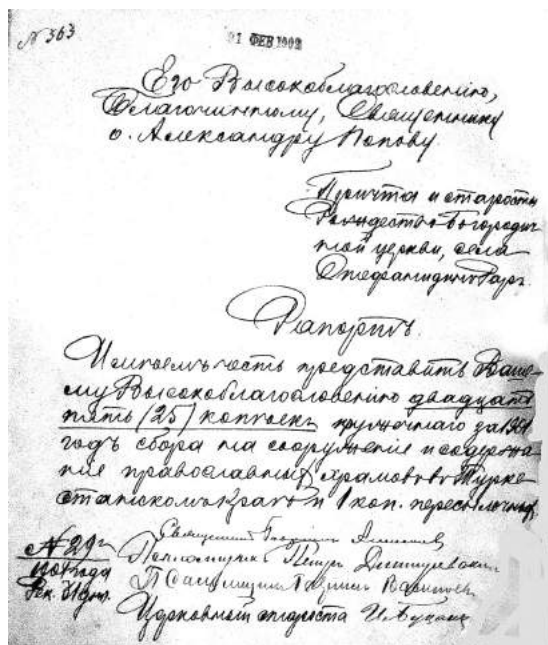 № 363
01 ФЕВ 1902
Его Высокоблагословенію,
Благочинному, Священнику
о. Александру Попову
Причта и старосты
Рождество-Богородич
ной церкви, села
Рапортъ.
Имѣемъ честь представить Ваше-
му Высокоблагословенію двадцать
пять (25) копѣекъ кружечнаго за 1901
годъ сбора на сооруженіе и содержа
ніе православныхъ храмовъ въ Турке
станскомъ краѣ и 1 коп. пересылочныхъ.
Священникъ
№ 29
1901 года
Петръ
Дек. 31 дня.
Псаломщикъ
Церковный староста